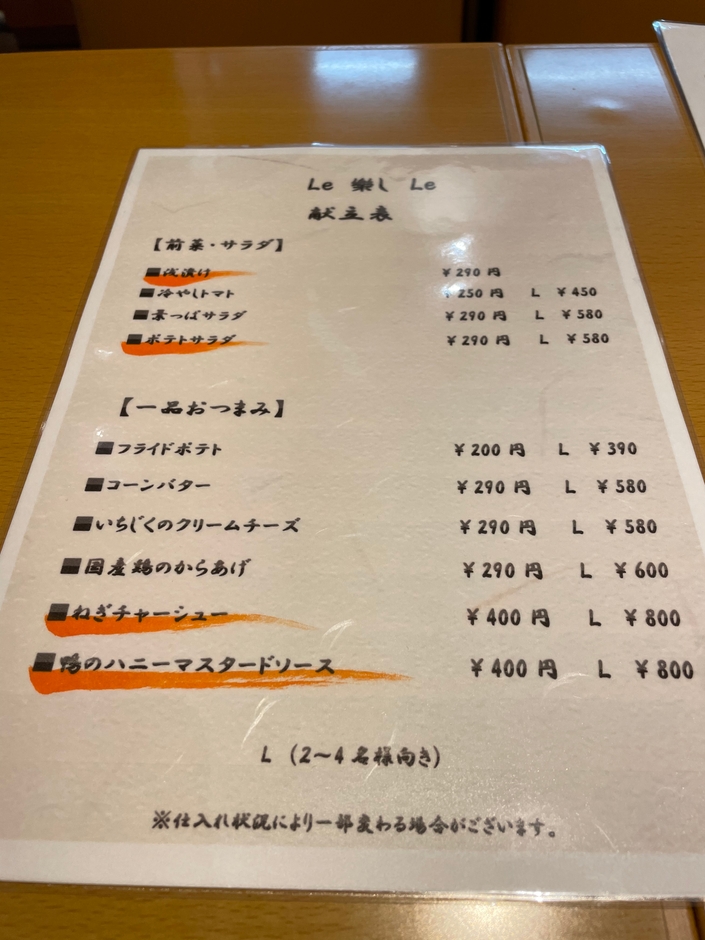 Le 樂し Le
献立表
【前菜・サラダ】
■浅漬け ¥290円
■冷やしトマト ¥250円 L ¥450
■葉っぱサラダ ¥290円 L ¥580
■ポテトサラダ ¥290円 L ¥580
【一品おつまみ】
■フライドポテト ¥200円 L ¥390
■コーンバター ¥290円 L ¥580
■いちじくのクリームチーズ ¥290円 L ¥580
■国産鶏のからあげ ¥290円 L ¥600
■ねぎチャーシュー ¥400円 L ¥800
■鴨のハニーマスタードソース ¥400円 L ¥800
L（2～4名様向き）
※仕入れ状況により一部変わる場合がございます。